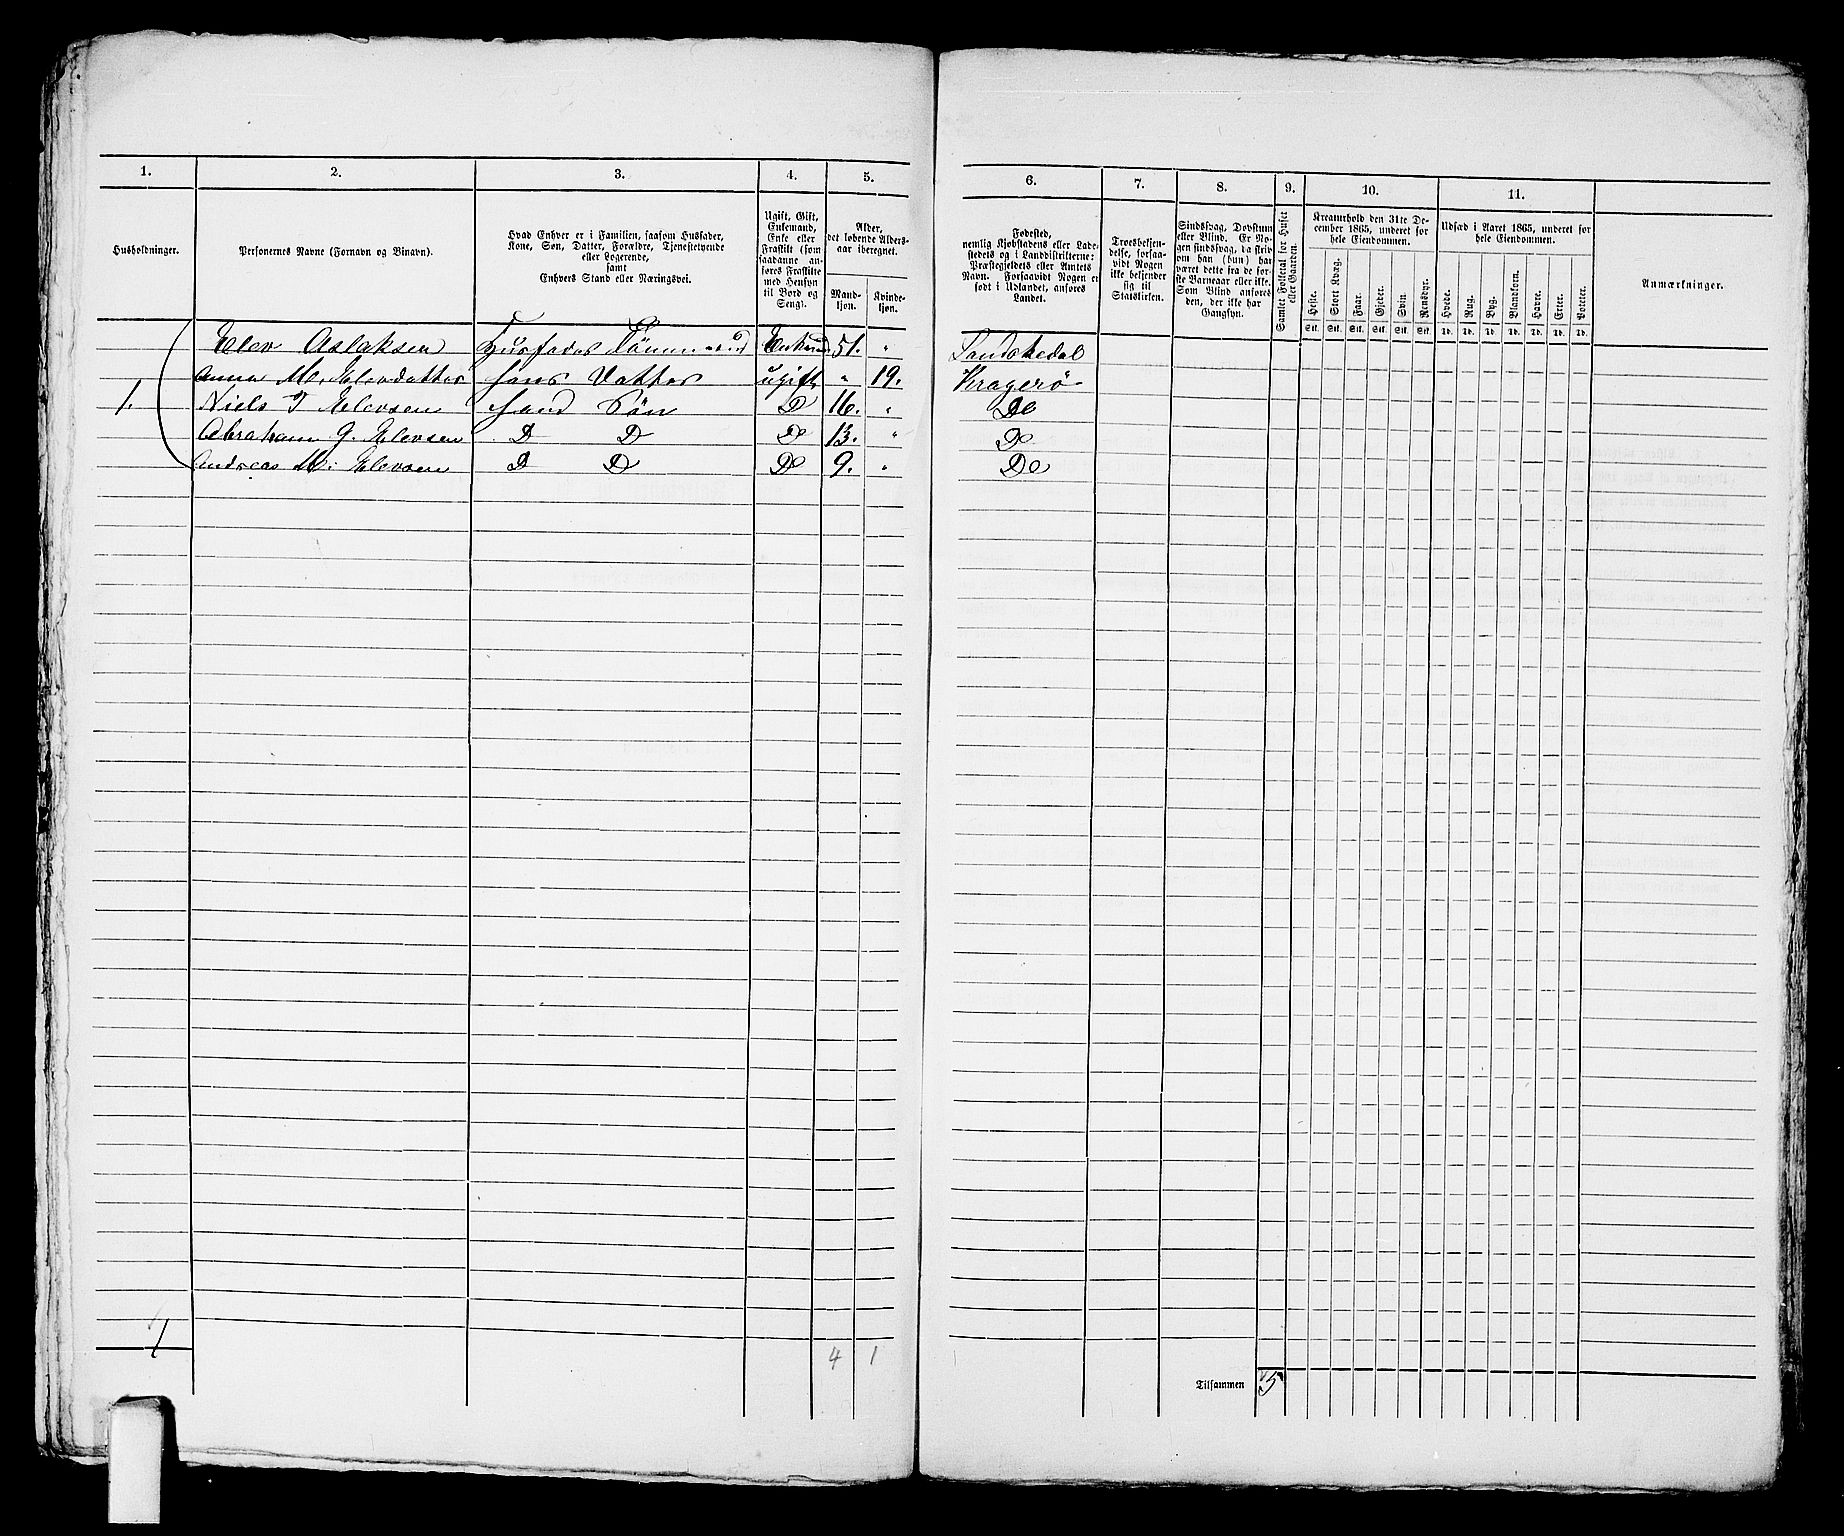 1. 2. 3. 4. 5. 6. 7. 8. 9. 10. 11.
Husholdninger.
Personernes Navne (Fornavn og Binavn).
Hvad Enhver er i Familien, saasom Husfader,
Kone, Søn, Datter, Forældre, Tjenestetyende
eller Logerende,
samt
Enhvers Stand eller Næringsvei.
Ugift, Gift,
Enkemand,
Enke eller
Fraskilt (som
saadanne an-
føres Fraskilte
med Hensyn
til Bord og
Seng).
Alder,
det løbende Alders-
aar iberegnet.
Mand-
kjøn.
Kvinde-
kjøn.
Fødested,
nemlig Kjøbstadens eller Lade-
stedets og i Landdistrikterne:
Præstegjeldets eller Amtets
Navn. Forsaavidt Nogen er
født i Udlandet, anføres
Landet.
Troesbekjen-
delse, forsaa-
vidt Nogen
ikke bekjender
sig til
Statskirken.
Sindssvag, Døvstum
eller Blind. Er No-
gen sindssvag, da skriv
om han (hun) har
været dette fra de for-
ste Barneaar eller ikke.
Som Blind anføres
den, der ikke har
Gangsyn.
Samlet Folketal for Huset
eller Gaarden.
Kreaturhold den 31te De-
cember 1865, underet for
hele Eiendommen.
Heste. Stort Kvæg. Faar. Gjeder. Svin. Rensdyr.
Stk. Stk. Stk. Stk. Stk. Stk.
Udsæd i Aaret 1865, underet for
hele Eiendommen.
Hvede. Rug. Byg. Blandkorn. Havre. Erter. Poteter.
Td. Td. Td. Td. Td. Td. Td.
Anmærkninger.
Elev Aslaksen Husfader Tömmmand Enkmd 51. " Sandshedal
Anna M. Elevdatter hans Datter ugift " 19. Kragerö
1. Niels T Elevsen hans Sön D 16. " Do
Abraham G. Elevsen D D Do 13. " Do
Andreas M: Elevsen D D Do 9. " Do
1
4 1
Tilsammen 5